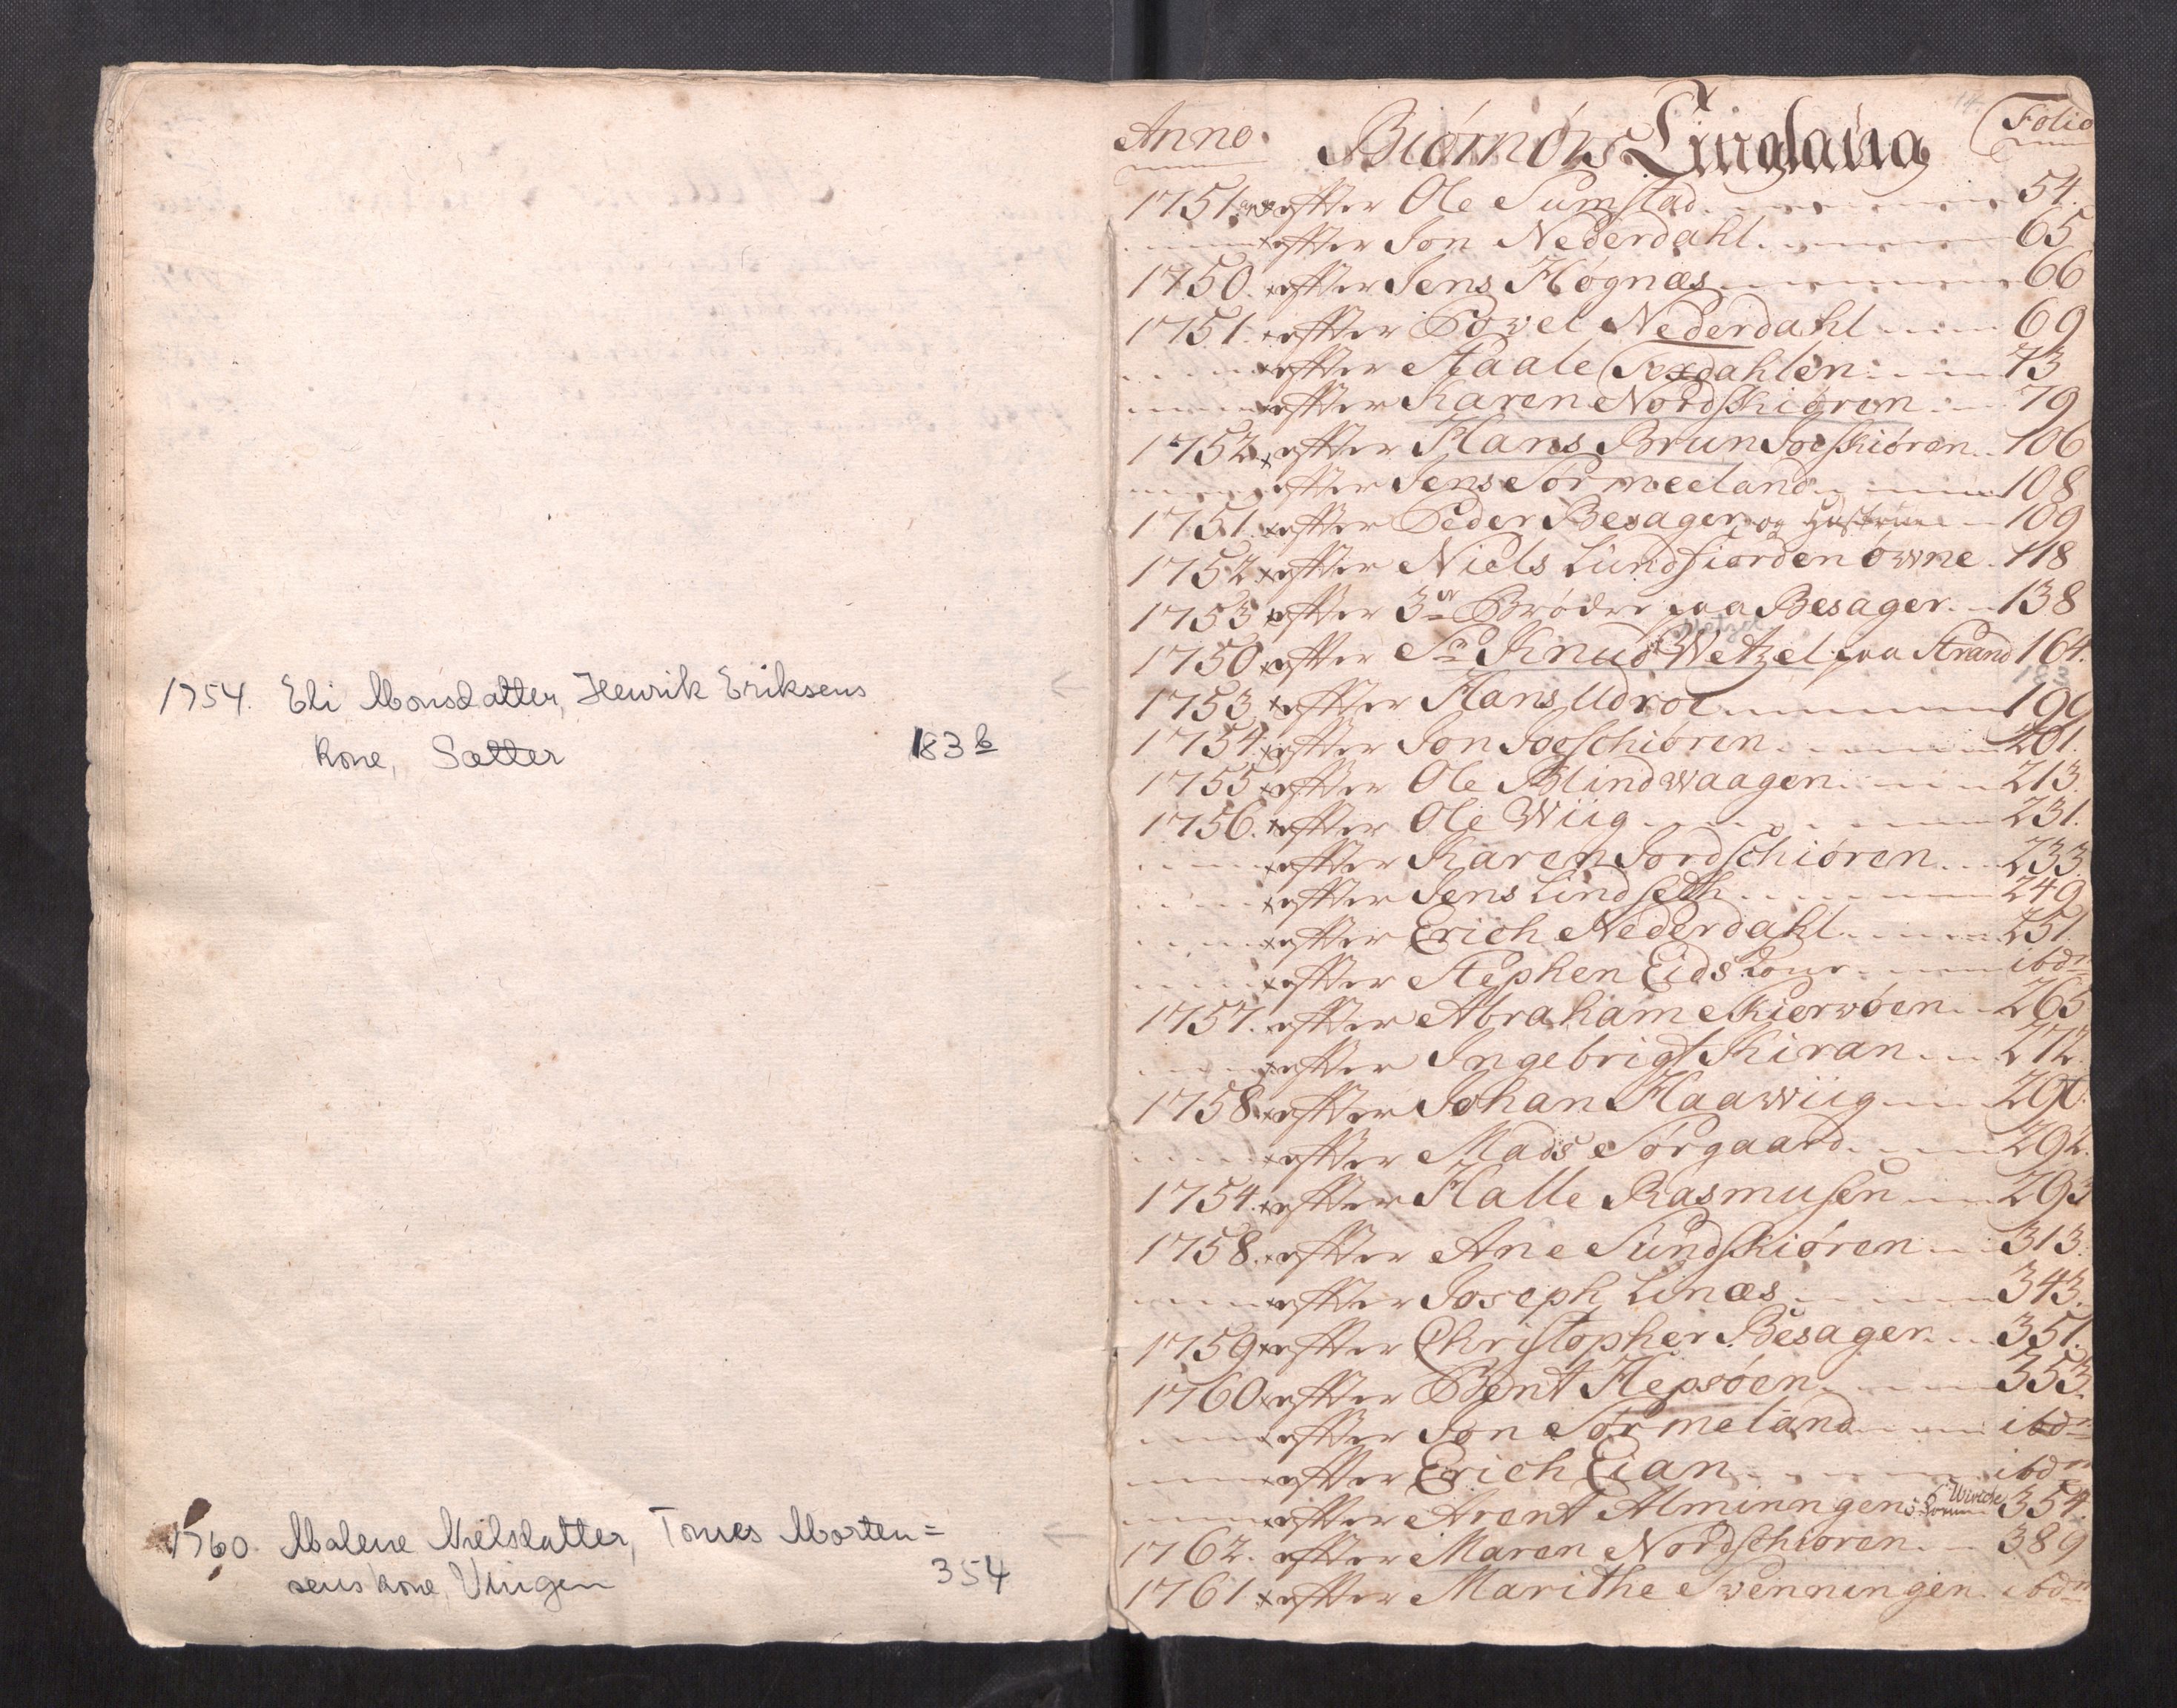 1754. Eli Monsdatter, Henrik Eriksens
kone, Sætter 183 b
1760 Malene Nielsdatter, Tomes Morten=
sens kone, Vingen 354
Anno. Biørnørs Tinglaug Folio
1751. efter Ole Sumstad 54.
efter Jon Nederdahl 65
1750. efter Jens Høgnæs 66
1751. efter Povel Nederdahl 69
efter Staale Sexdahlen 73
efter Karen Nordskiøren 79
1752. efter Hans Brun Joeskiøren 106
efter Jens Sørmeeland 108
1751. efter Peder Besager og Hustrue 109
1752 efter Niels Lundfiorden øwne 118
1753 efter 3de Brødre paa Besager 138
1750 efter Sr Knud Wetzel paa Strand 164.
1753 efter Hans Udroe 199
1754. efter Jon Joeschiøren 201.
1755 efter Ole Blindwaagen 213.
1756. efter Ole Wiig 231.
efter Karen Jordschiøren 233.
efter Jens Lindseth 249
efter Erich Nederdahl 251
efter Stephen Eids kone ibdm
1757. efter Abraham Skierwøen 265
efter Ingebrigt Kiran 272.
1758. efter Johan Haawiig 290.
efter Mads Sørgaard 292.
1754. efter Halle Rasmusen 293
1758. efter Ane Sundskiøren 313.
efter Joseph Linæs 343.
1759 efter Christopher Besager 351.
1760 efter Bent Hepsøen 353.
efter Jon Sørmeland ibdm
efter Erich Eian ibdm
efter Arent Alminngen 354.
1762. efter Maren Nordschiøren 389
1761 efter Marithe Svenningen ibdm